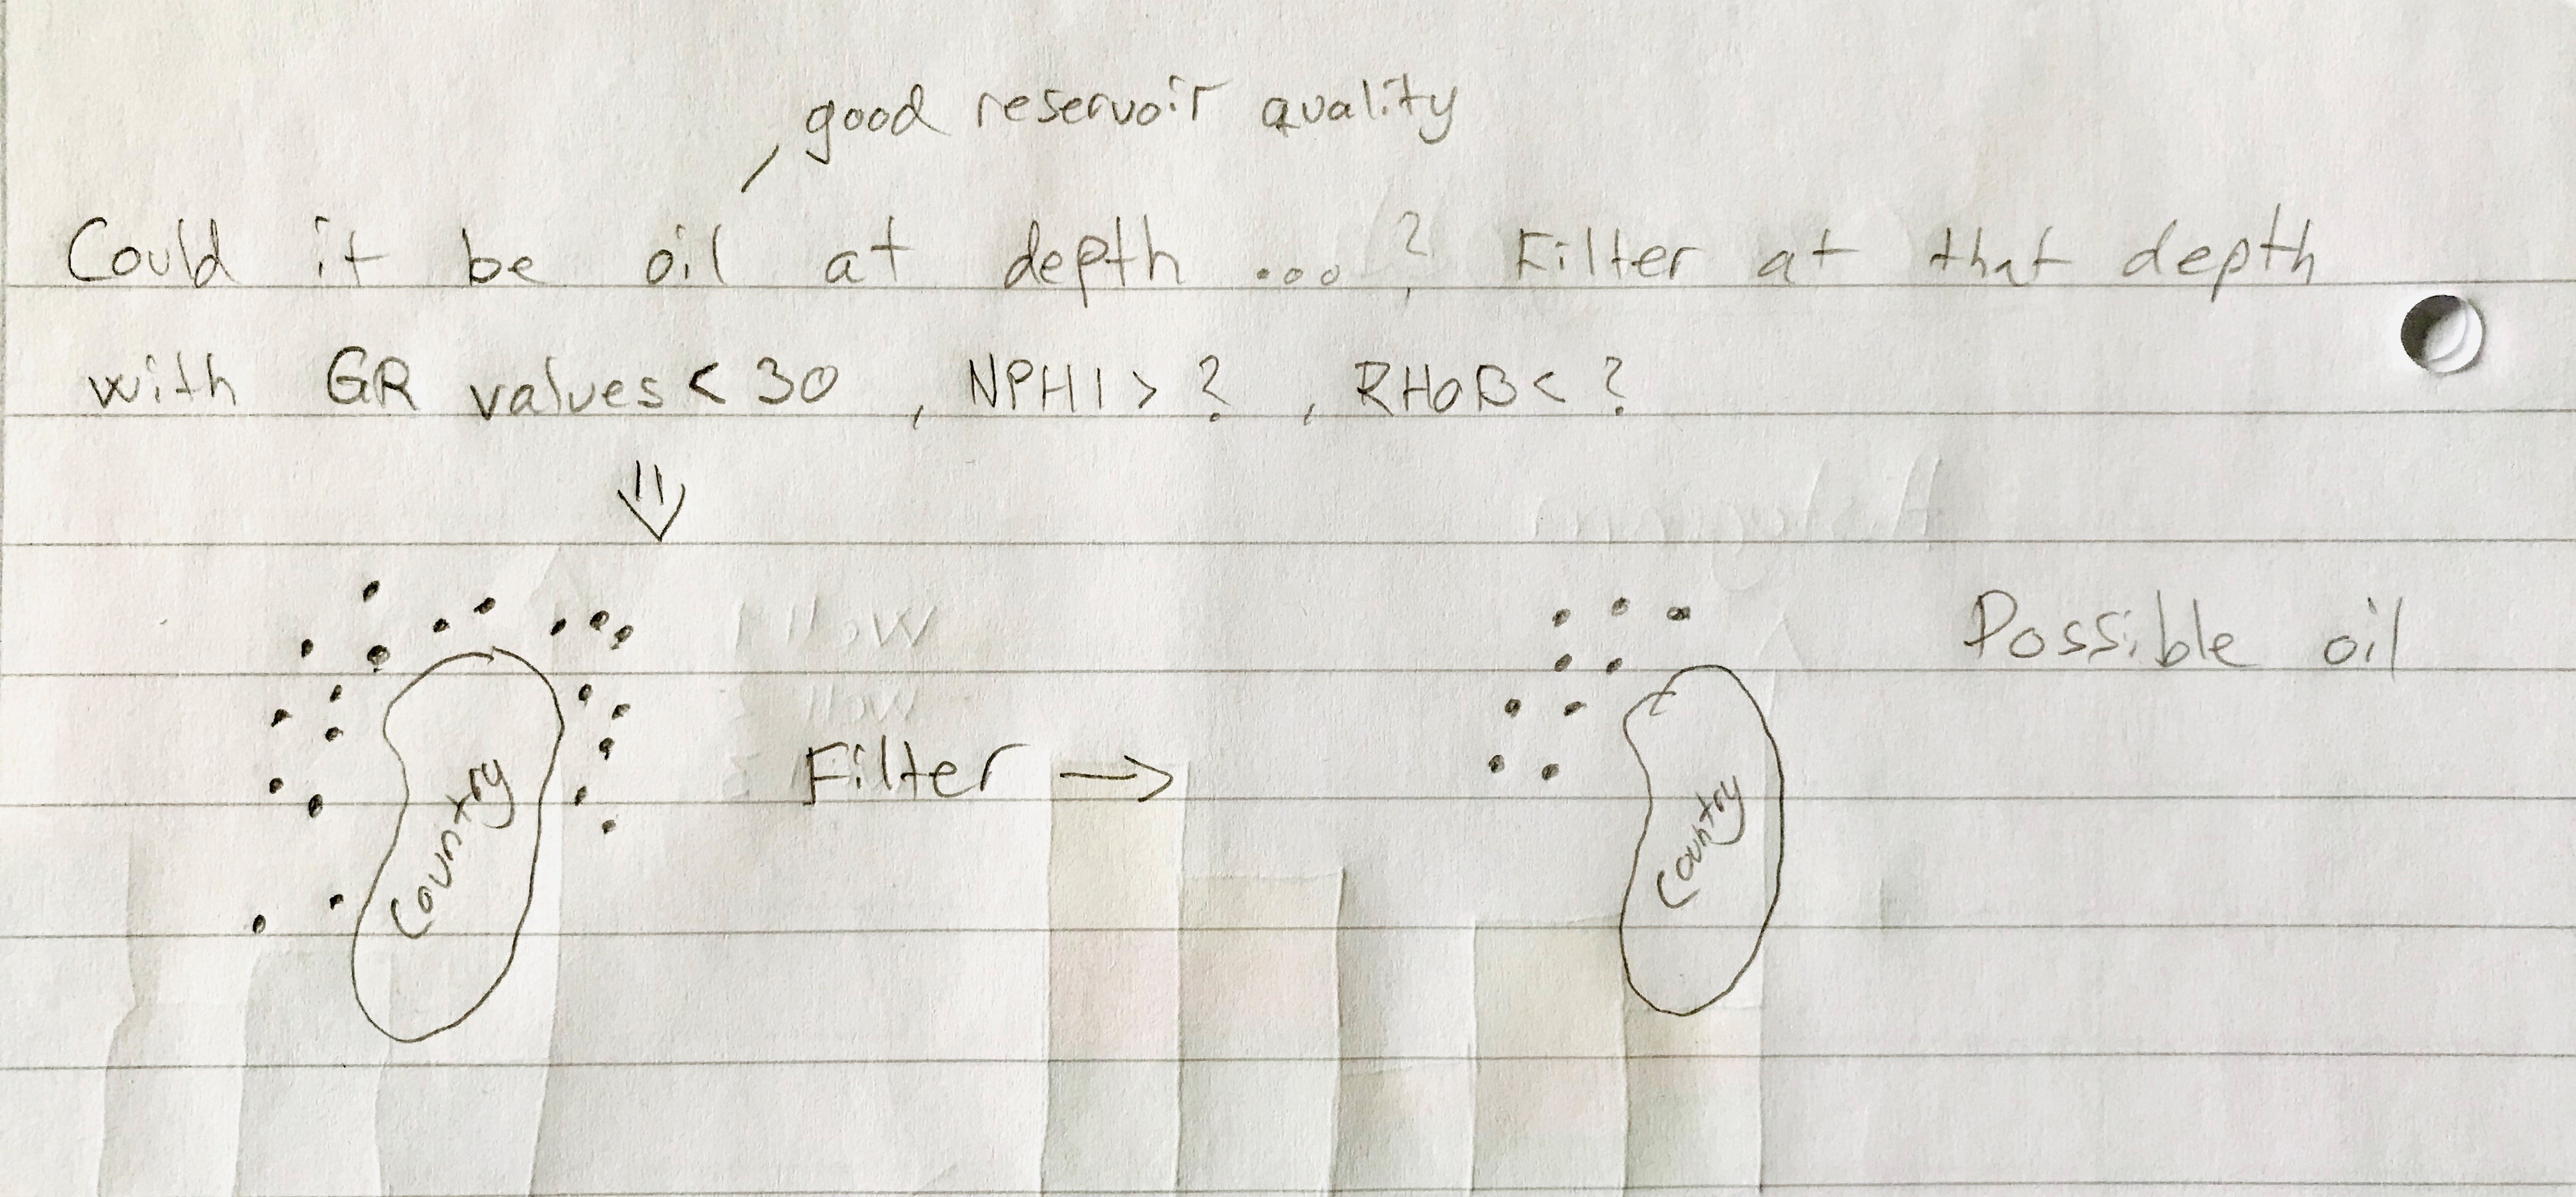 good reservoir quality
Could it be oil at depth ...? Filter at that depth
with GR values < 30, NPHI > ?, RHOB < ?
Possible oil
Filter →
Country
Country